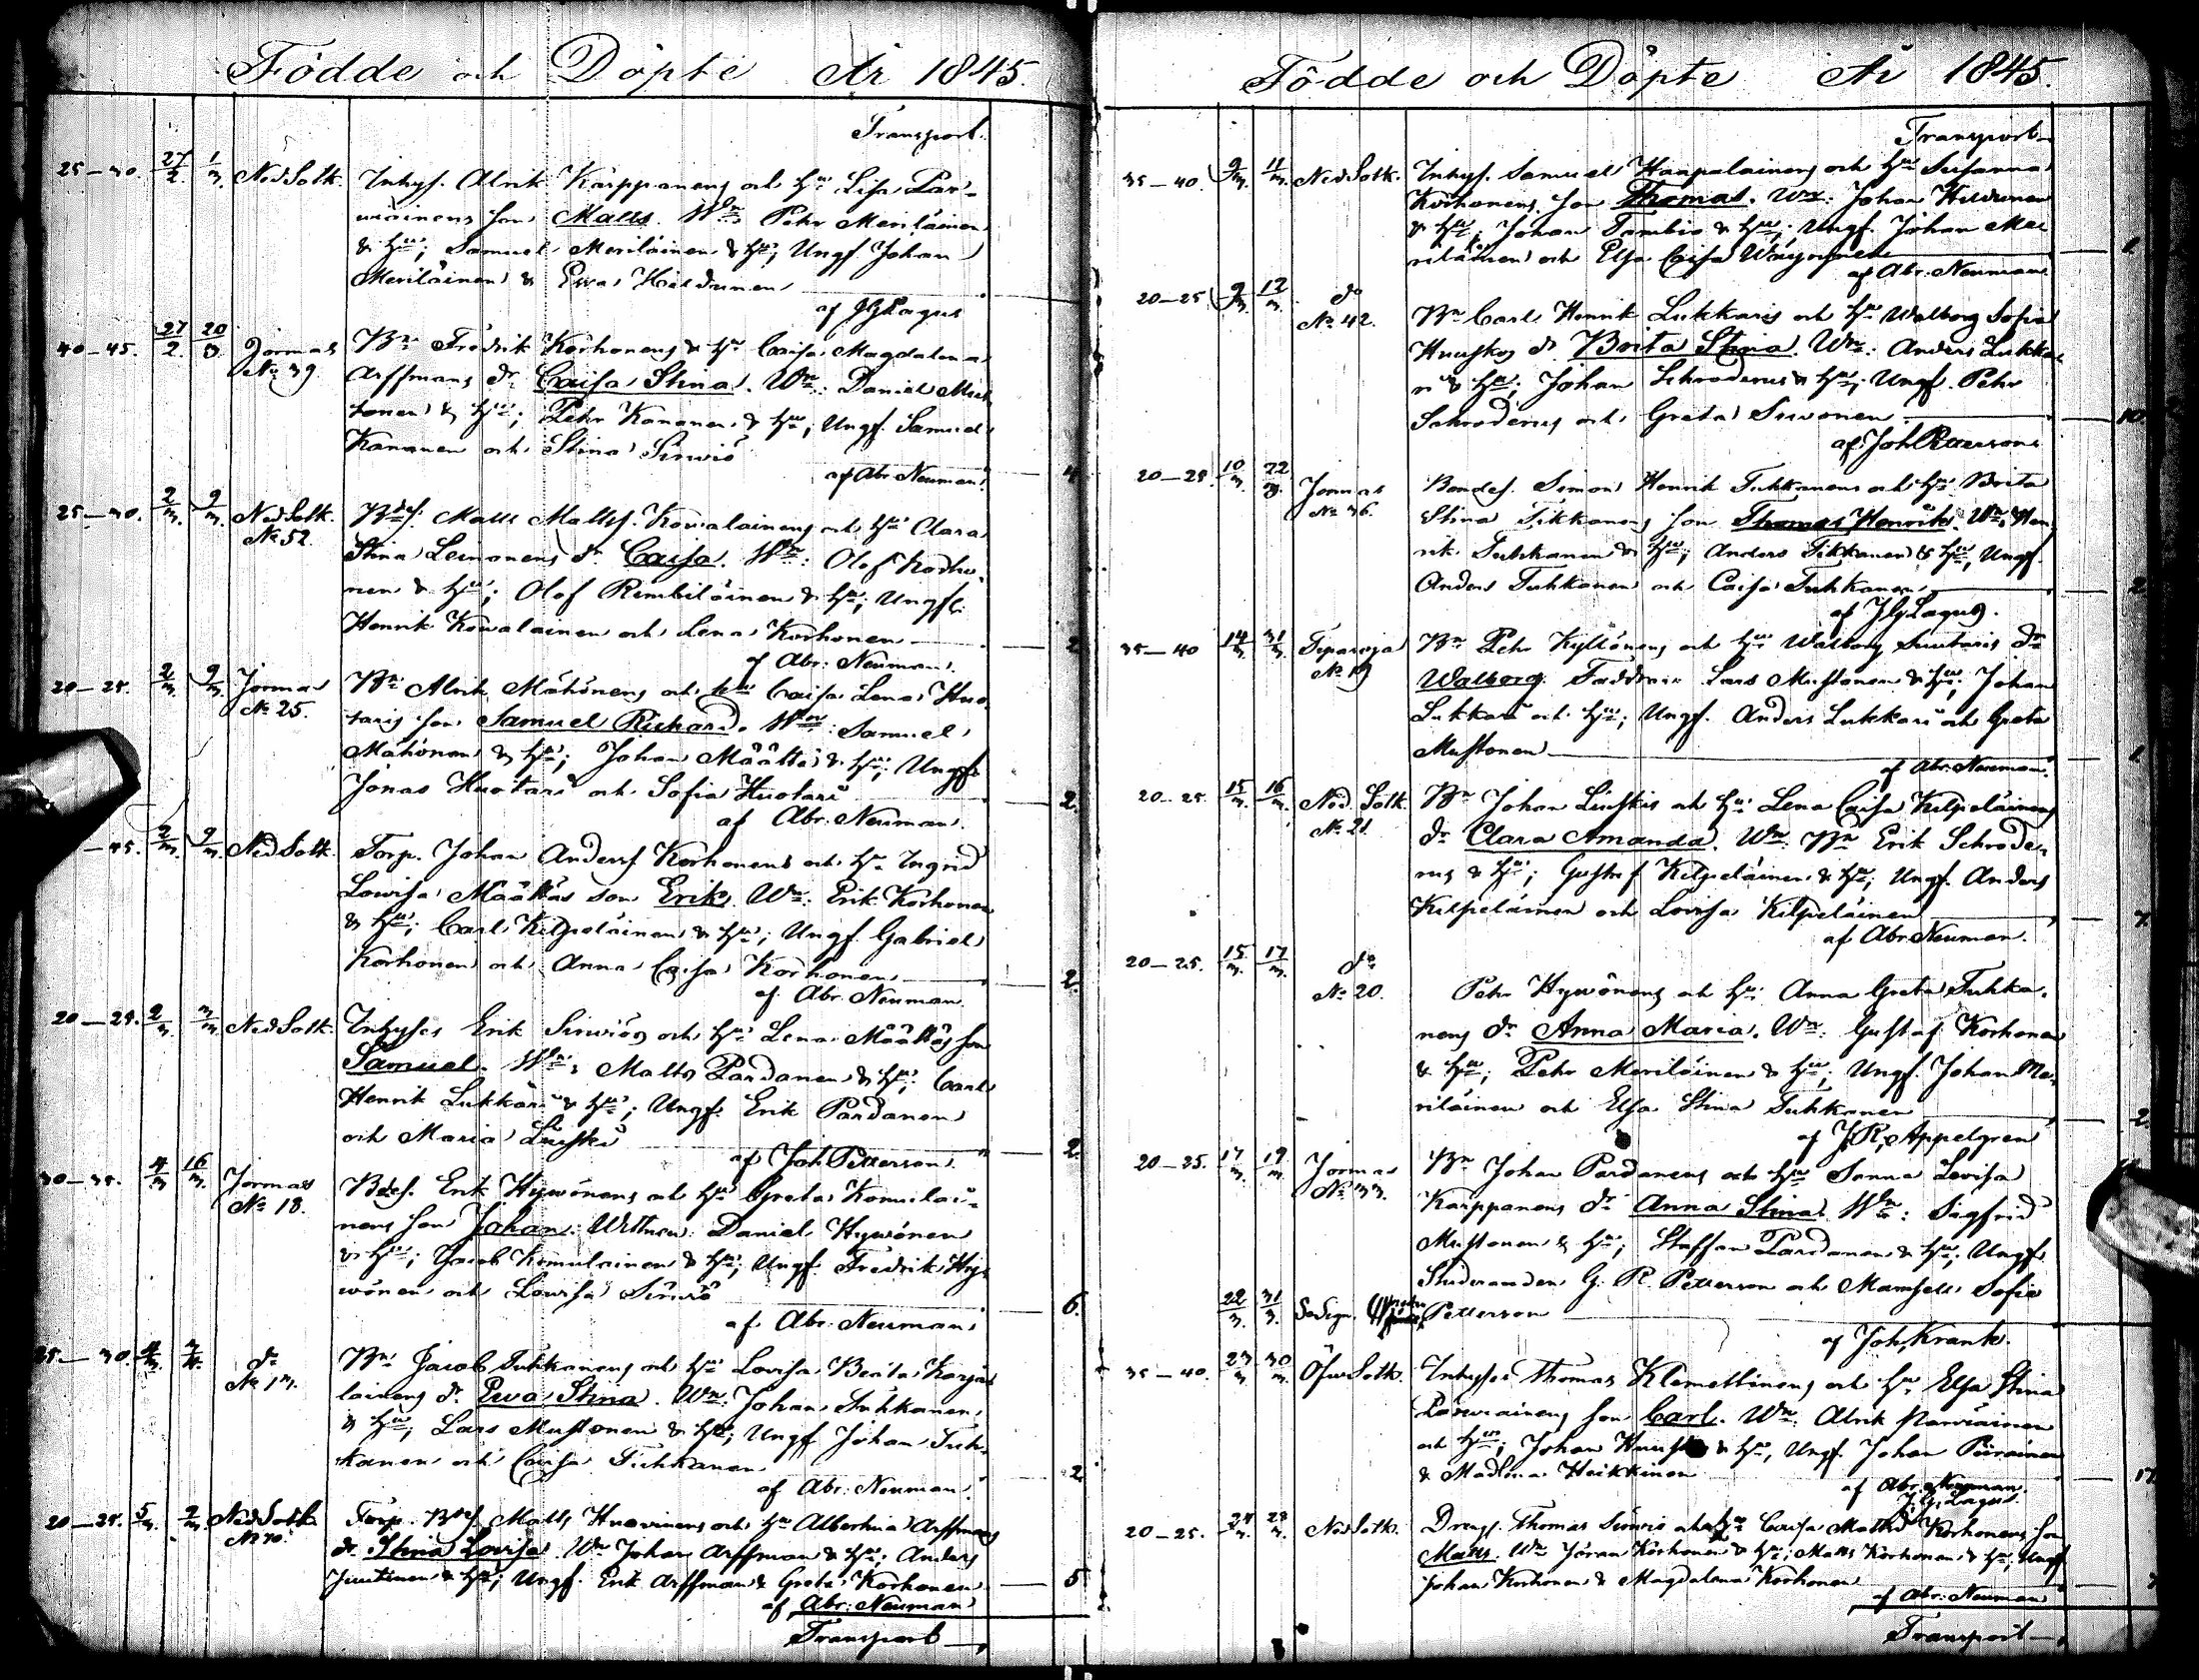 Födde och Döpte År 1845.
Transport.
25–30. 27/2. 1/3. Ned Sotk. Inhys. Alrik Karppanens och hu Lisa Par-
viainens son Matts. Wn Pehr Meriläinen
& hu; Samuel Meriläinen & hu; Ungf Johan
Meriläinen & Ewa Heldunen
af JGLagus
40–45. 27/2. 20/3. Jormas Bn Fredrik Korhonens & hu Caisa Magdalena
No 39 Arffmans dr Caisa Stina. Wn: Daniel Mus-
tonen & hu; Pehr Kananen & hu; Ungf. Samuel
Kananen och Stina Sirviö
af Abr. Neuman. 4
25–30. 2/3. 9/3. Ned Sotk. Bdes. Matts Mattss. Kowalainens och hu Clara
No 52. Stina Leinonens dr Caisa. Wn: Olof Korho-
nen & hu; Olof Rimbiläinen & hu; Ungf.
Henrik Kowalainen och Lena Korhonen
af Abr: Neuman. 2
20–25. 2/3. 9/3. Jormas Bn Alrik Mähönens och hu Caisa Lena Huo-
No 25. taris son Samuel Richard. Wn: Samuel
Mähönen & hu; Johan Määttä & hu; Ungf
Jonas Huotari och Sofia Huotari
af Abr. Neuman. 2.
–45. 2/3. 9/3. Ned Sotk. Torp. Johan Anderss Korhonens och hu Ingrid
Lowisa Määttäs son Erik. Wn: Erik Korhonen
& hu; Carl Kilpeläinen & hu; Ungf. Gabriel
Korhonen och Anna Caisa Korhonen
af Abr. Neuman. 2
20–25. 2/3. 3/3. Ned Sotk. Inhyses Erik Sirwiös och hu Lena Määttäs son
Samuel. Wn: Matts Pardanen & hu; Carl
Henrik Lukkari & hu; Ungf. Erik Pardanen
och Maria Liuski
af Joh Petterson. 2
30–35. 4/3 16/3. Jormas Bdes. Erik Hywönens och hu Greta Komulai-
No 18. nens son Johan. Wittnen: Daniel Hywönen
& hu; Jacob Komulainen & hu; Ungf. Fredrik Hy-
wönen och Lowisa Sirviö
af Abr: Neuman. 6.
25–30. 4/3. do Bn Jacob Tuhkanens och hu Lovisa Beata Karja-
No 13. lainens dr Ewa Stina. Wn: Johan Tuhkanen
& hu; Lars Mustonen & hu; Ungf Johan Tuh-
kanen och Caisa Tuhkanen
af Abr: Neuman. 2
20–25. 5/3. 9/3. Ned Sotk. Torp. Bdes Matts Huovinens och hu Albertina Arffmans
No 70. dr Stina Lovisa. Wn Johan Arffman & hu; Anders
Juntunen & hu; Ungf. Erik Arffman & Greta Korhonen 5
af Abr: Neuman
Transport
Födde och Döpte År 1845.
Transport
35–40. 9/3. 11/3. Ned Sotk. Inhys. Samuel Haapalainens och hu Susanna
Korhonens son Thomas. Wn: Johan
& hu; Johan Tombio & hu; Ungf. Johan Me-
riläinen och Elsa Caisa Wäyrynen 2
af Abr: Neuman
20–25. 9/3. 12/3. do Bn Carl Henrik Lukkaris och hu Walborg Sofia
No 42. Huuskos dr Brita Stina. Wn: Anders Lukka-
ri & hu; Johan Schroderus & hu; Ungf. Pehr
Schroderus och Greta Siwonen 10.
af Joh Petterson
20–25. 10/3. 22/3. Jormas Bondes. Simon Henrik Tuhkanens och hu Brita
No 36. Stina Tikkanens son Thomas Henrik. Wn: Hen-
rik Tuhkanen & hu; Anders Tikkanen & hu, Ungf.
Anders Tuhkanen och Caisa Tuhkanen 2
af JGLagus.
35–40 14/3. 31/3. Tipasoja Bn Pehr Kyllönens och hu Walborg Huutaris dr
No 19 Walborg. Faddrar Lars Mustonen & hu; Johan
Lukkari och hu; Ungf. Anders Lukkari och Greta
Mustonen 1
af Abr. Neuman.
20–25. 15/3. 16/3. Ned. Sotk. Bn Johan Liuskis och hu Lena Caisa Kilpeläinens
No 21. dr Clara Amanda. Wn: Bn Erik Schrode-
rus & hu; Gustaf Kilpeläinen & hu; Ungf. Anders
Kilpeläinen och Lovisa Kilpeläinen 7.
af Abr. Neuman.
20–25. 15/3. 17/3. do
No 20. Pehr Hywönens och hu Anna Greta Tuhka-
nens dr Anna Maria. Wn: Gustaf Korhonen
& hu; Pehr Meriläinen & hu; Ungf. Johan Me-
riläinen och Elsa Stina Tuhkanen 2
af J. R. Appelgren
20–25. 17/3. 19/3. Jormas Bn Johan Pardanens och hu Sanna Lovisa
No 33. Karppanens dr Anna Stina. Wn: Sigfrid
Mustonen & hu; Staffan Pardanen & hu; Ungf.
Studeranden G. R. Petterson och Mamsell Sofia
22/3. 31/3. Petterson
af Joh, Krank.
35–40. 23/3 30/3. Öfver Sotk. Inhyses Thomas Klemettinens och hu Elsa Stina
Parwiainens son Carl. Wn: Alrik Parviainen
och hu; Johan Huusko & hu, Ungf. Johan Piirainen
& Madlena Heikkinen 17
af Abr. Neuman.
J. G. Lagus.
20–25. 24/3. 28/3. Ned Sotk. Drengs. Thomas Sirviö och hu Caisa Korhonens son
Matts. Wn Jöran Korhonen & hu; Matts Korhonen & hu, Ungf
Johan Korhonen & Magdalena Korhonen
af Abr: Neuman
Transport